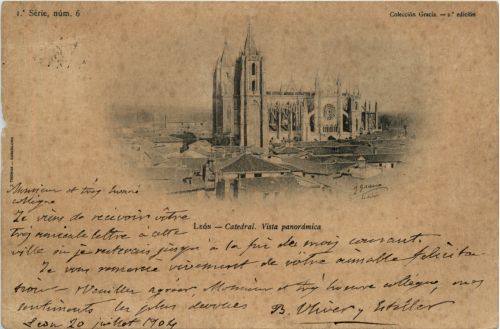 1.ª Série, núm. 6
Colección Gracia. — 2.ª edición
LEÓN. — Catedral. Vista panorámica
Monsieur et très honoré
collègue
Je viens de recevoir vôtre
très aimable lettre à cette
ville où je resterais jusqu'à la fin de mois courant.
Je vous remercie vivement de vôtre aimable félicita-
tion — Veuillez agréer, Monsieur et très honoré collègue, mes
sentiments les plus dévoués B. Oliver y Esteller
León 20 juillet 1904